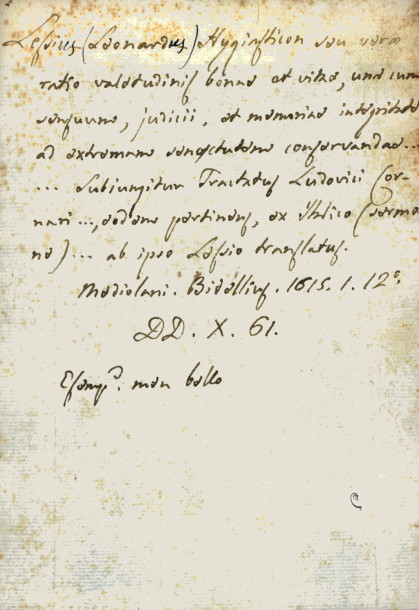 Lessius (Leonardus) Hygiasticon seu vera
ratio valetudinis bonae et vitae, una cum
sensuum, judicii, et memoriae integritate
ad extremam senectutem conservandae...
... Subiungitur Tractatus Ludovici Cor-
nari ..., eodem pertinens, ex Italico (sermo
ne) ... ab ipso Lessio translatus.
Mediolani. Bidellius. 1615. 1. 12°.
DD. X. 61.
Esemp. men bello